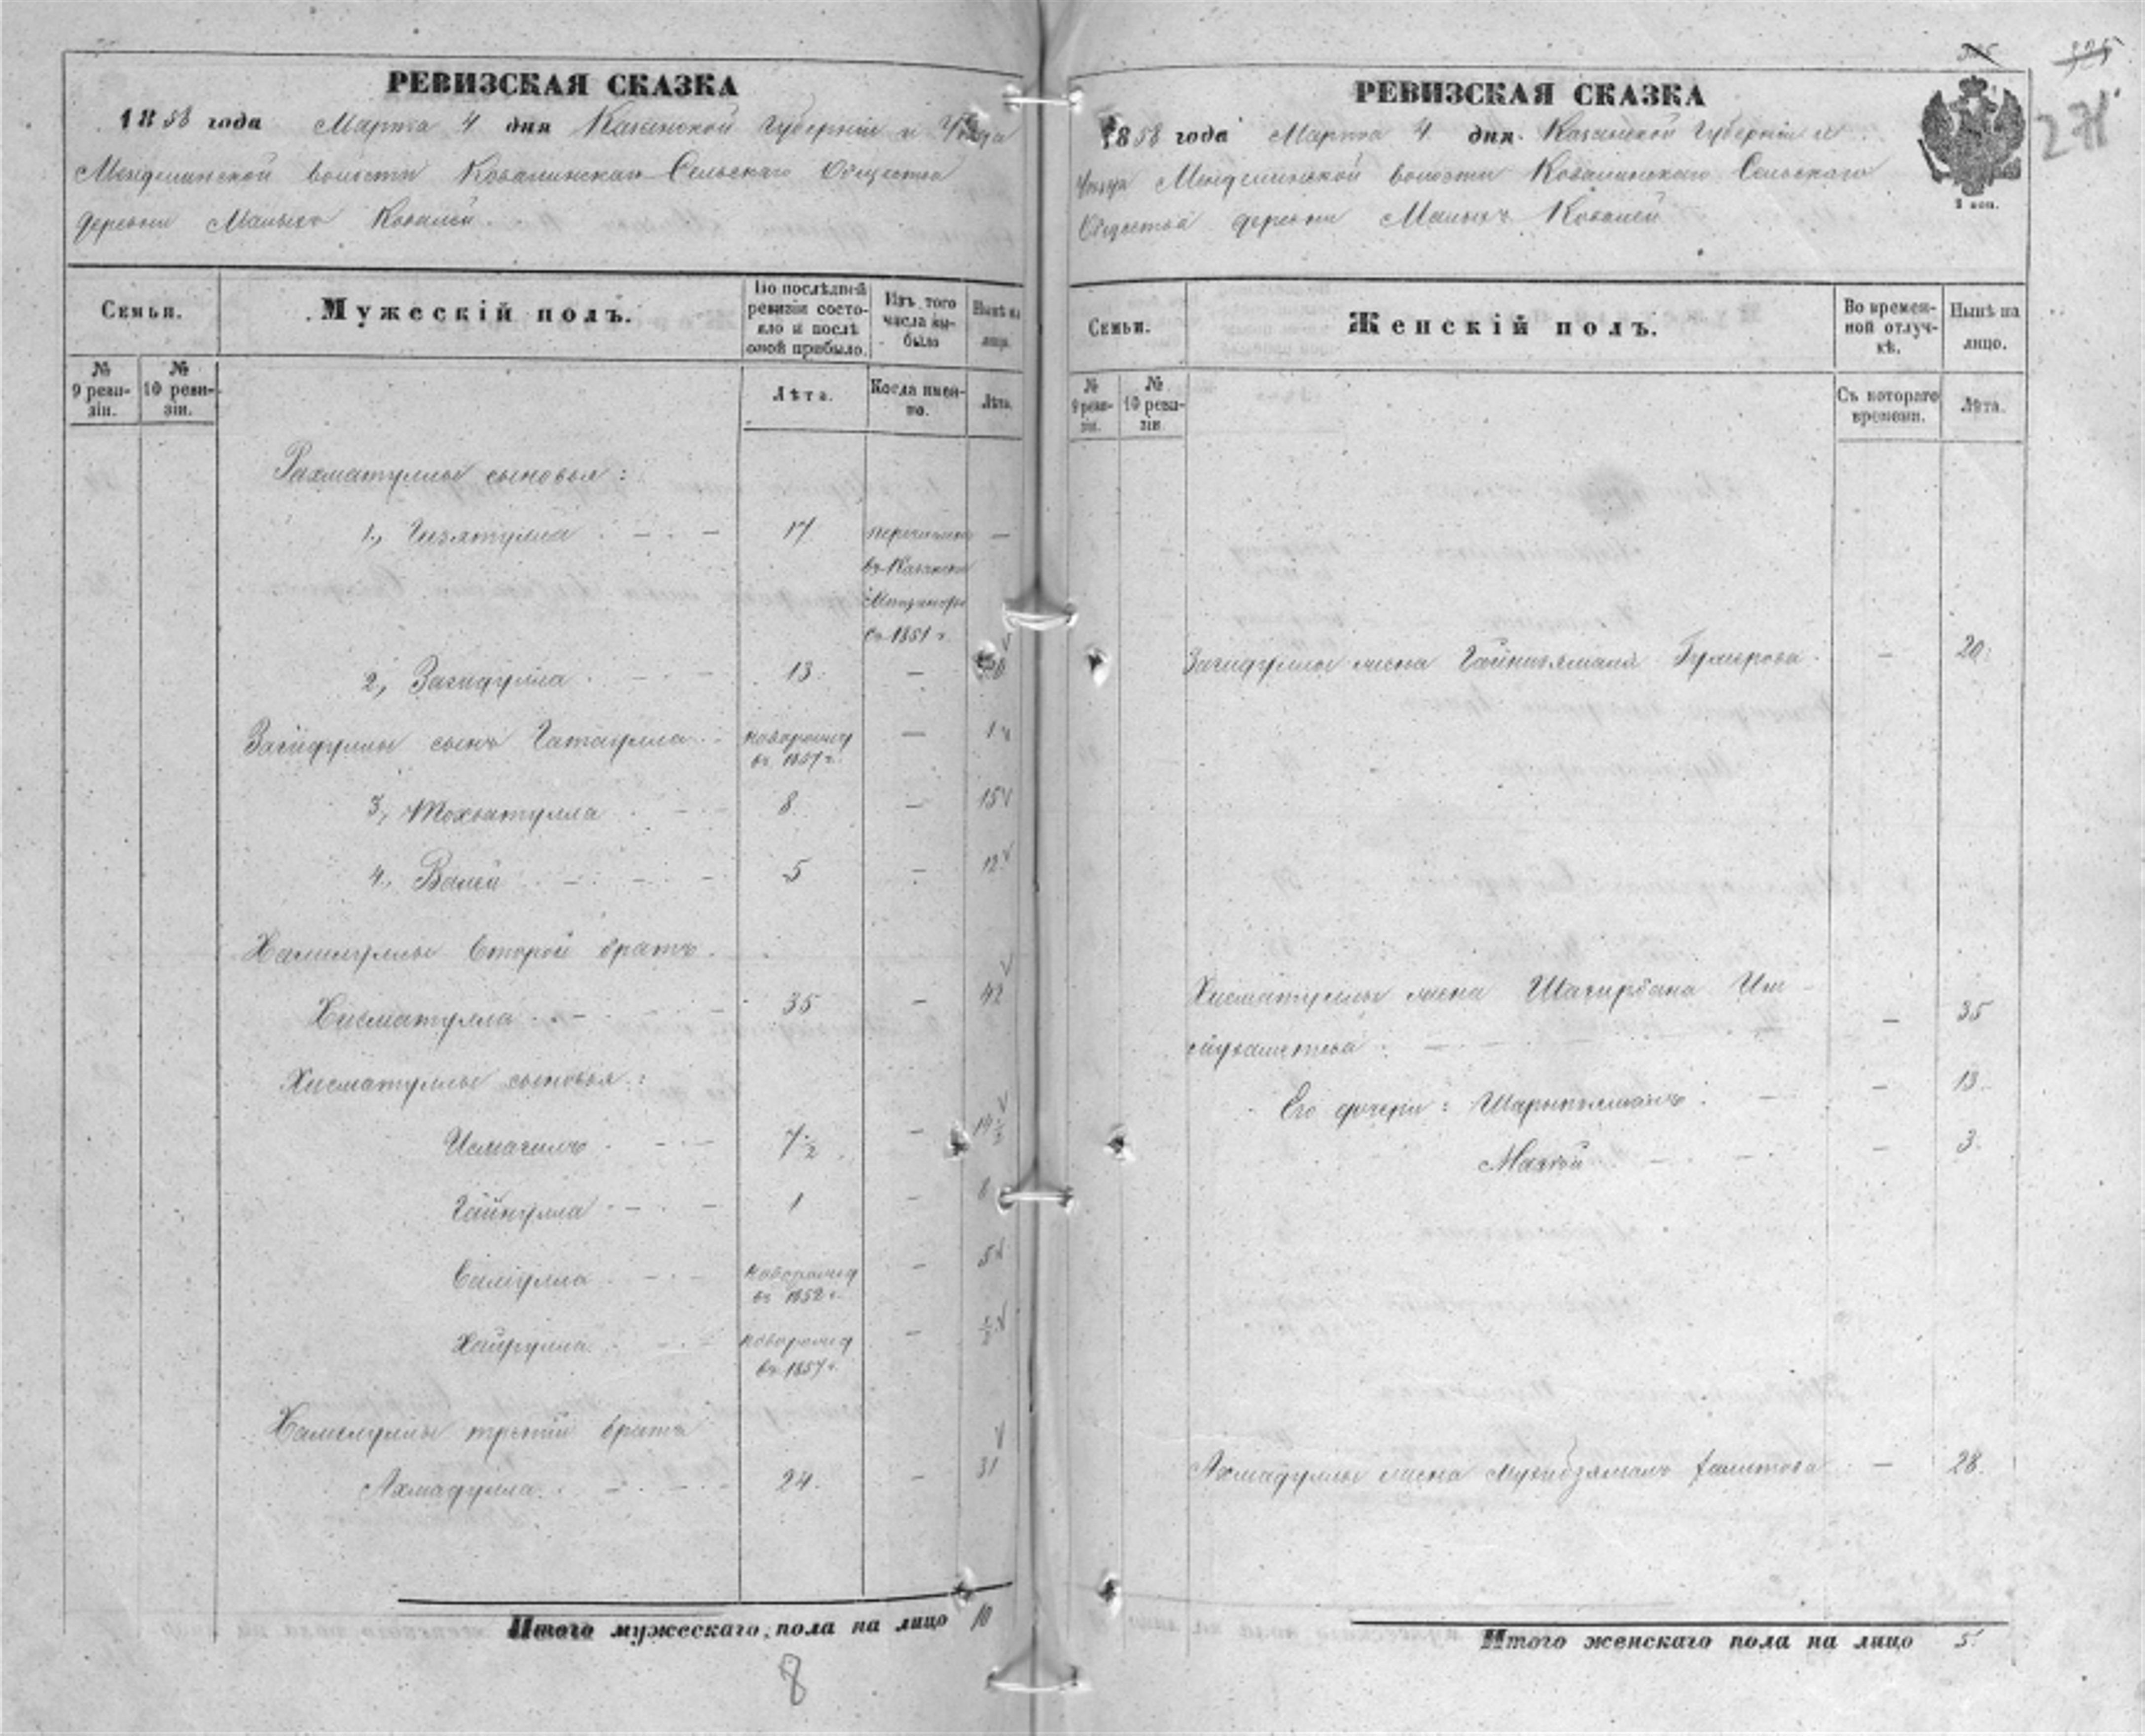 РЕВИЗСКАЯ СКАЗКА
1858 года Марта 4 дня Казанской Губернiи и Уѣзда
Менделинской волости Ковалинскаго Сельскаго Общества
деревни Малыхъ Ковалей
Семьи.
Мужескiй полъ.
По послѣдней ревизiи состояло и послѣ оной прибыло.
Изъ того числа выбыло
Нынѣ на лицо.
№ 9 ревизiи.
№ 10 ревизiи.
Лѣта.
Когда именно.
Лѣта.
Рахматуллы сыновья:
1., - - 17 перечисленъ -
въ Казанскiе
съ 1851 г.
2, Загидулла - - 13. - 20
Загидуллы сынъ Гатаулла - новорожд - 1
въ 1857 г.
3, Мохватулла - - 8. - 15
4., Валей - - - 5 - 12
Халиуллы второй братъ.
Хисматулла - - 35 - 42
Хисматуллы сыновья:
Исмагилъ - - 7 1/2 - 14 1/2
Гайнулла - - 1 - 8
Салиулла - - новорожд - 5
въ 1852 г.
Хайрулла - - новорожд - 1/2
въ 1857 г.
третiй братъ
Ахмадулла - - 24. - 31
Итого мужескаго пола на лицо 10
8
РЕВИЗСКАЯ СКАЗКА
1858 года Марта 4 дня. Казанской Губернiи и
Уѣзда Менделинской волости Ковалинскаго Сельскаго
Общества деревни Малыхъ Ковалей
325
271
1 коп.
Семьи.
Женскiй полъ.
Во временной отлучкѣ.
Нынѣ на лицо.
№ 9 ревизiи.
№ 10 ревизiи
Съ котораго времени.
Лѣта.
Загидуллы жена Гайнизямала Гумерова - 20.
Хисматуллы жена Шагирбана Иш-
- 35
Его дочери: - 13.
- 3.
Ахмадуллы жена - 28.
Итого женскаго пола на лицо 5.